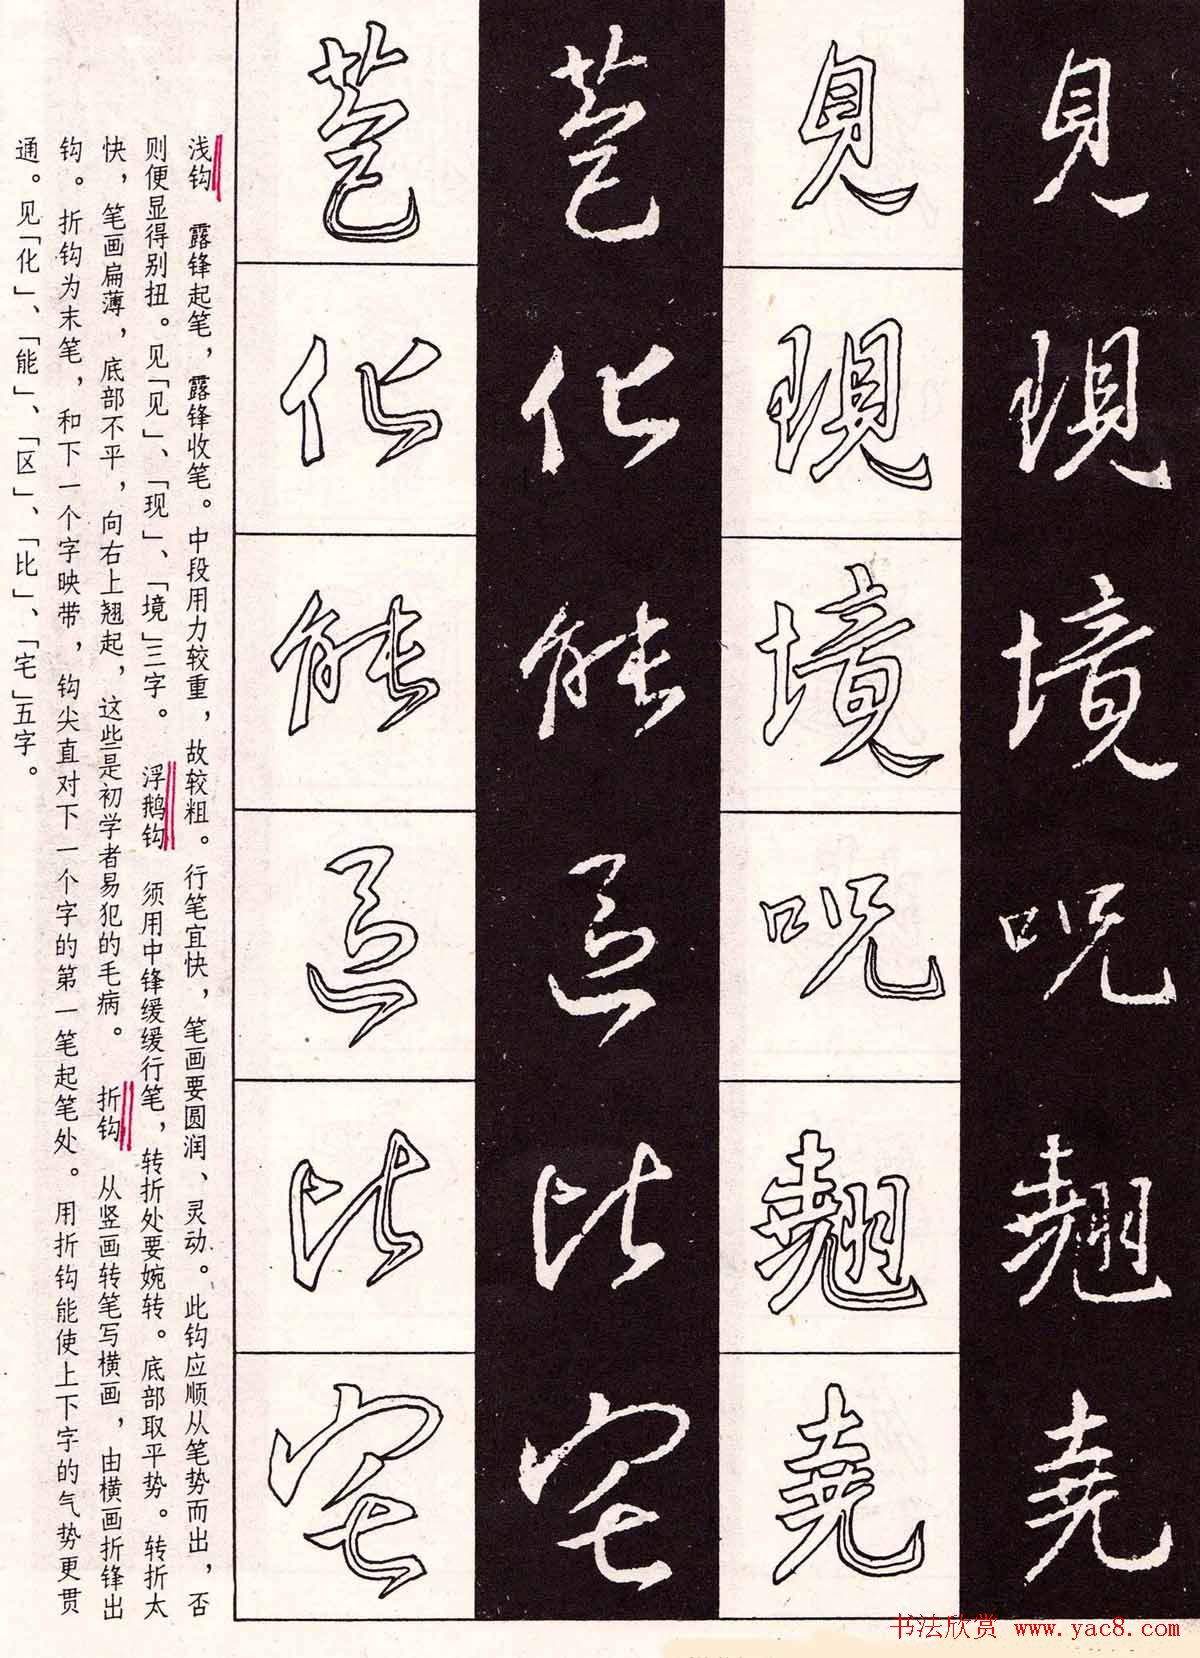 見現境呪翹堯
見現境呪翹堯
化能區比宅
化能區比宅
浅钩　露锋起笔，露锋收笔。中段用力较重，故较粗。行笔宜快，笔画要圆润、灵动。此钩应顺从笔势而出，否
则便显得别扭。见「见」、「现」、「境」三字。　浮鹅钩　须用中锋缓缓行笔，转折处要婉转。底部取平势。转折太
快，笔画扁薄，底部不平，向右上翘起，这些是初学者易犯的毛病。　折钩　从竖画转笔写横画，由横画折锋出
钩。折钩为末笔，和下一个字映带，钩尖直对下一个字的第一笔起笔处。用折钩能使上下字的气势更贯
通。见「化」、「能」、「区」、「比」、「宅」五字。
书法欣赏 www.yac8.com